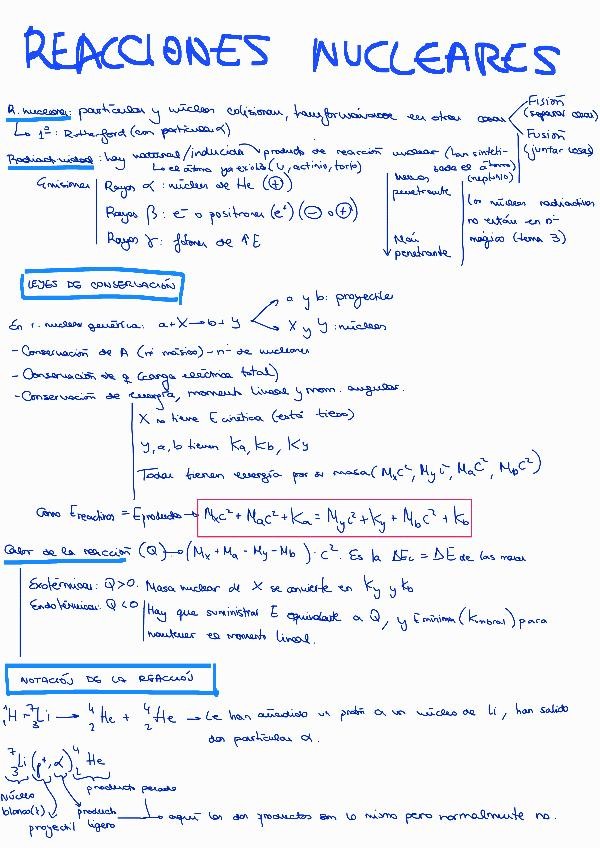 REACCIONES NUCLEARES
R. nuclear: partículas y núcleos colisionan, transformándose en otras cosas
Fisión (separar cosas)
Fusión (juntar cosas)
1ª: Rutherford (con partículas α)
Radiactividad: hay natural/inducida producto de reacción nuclear (han sinteti-
zado el átomo)
el átomo ya existía (U, actinio, torio)
(neptunio)
Emisiones
Rayos α: núcleos de He (+)
Rayos β: e⁻ o positrones (e⁺) (- o +)
Rayos γ: fotones de ↑E
menos penetrante
Más penetrante
Los núcleos radiactivos
no están en nº
mágico (tema 3)
LEYES DE CONSERVACIÓN
En r. nuclear genérica: a+X→b+Y
a y b: proyectiles
X y Y: núcleos
- Conservación de A (nº másico) - nº de nucleones
- Conservación de q (carga eléctrica total)
- Conservación de energía, momento lineal y mom. angular.
X no tiene E cinética (está tieso)
Y, a, b tienen Ka, Kb, Ky
Todas tienen energía por su masa (Mxc², Myc², Mac², Mbc²)
Como Ereactivos = Eproductos → Mxc² + Mac² + Ka = Myc² + Ky + Mbc² + Kb
Calor de la reacción (Q) → (Mx + Ma - My - Mb) · c². Es la ΔEc = ΔE de las masas
Exotérmicas: Q>0. Masa nuclear de X se convierte en Ky y Kb
Endotérmicas: Q<0 Hay que suministrar E equivalente a Q, y Emínima (Kumbral) para
mantener el momento lineal.
NOTACIÓN DE LA REACCIÓN
¹H + ⁷₃Li → ⁴₂He + ⁴₂He → Le han añadido un protón a un núcleo de Li, han salido
dos partículas α.
⁷₃Li (p⁺, α) ⁴₂He
núcleo
blanco(t)
proyectil
producto
ligero
producto pesado
aquí los dos productos son lo mismo pero normalmente no.